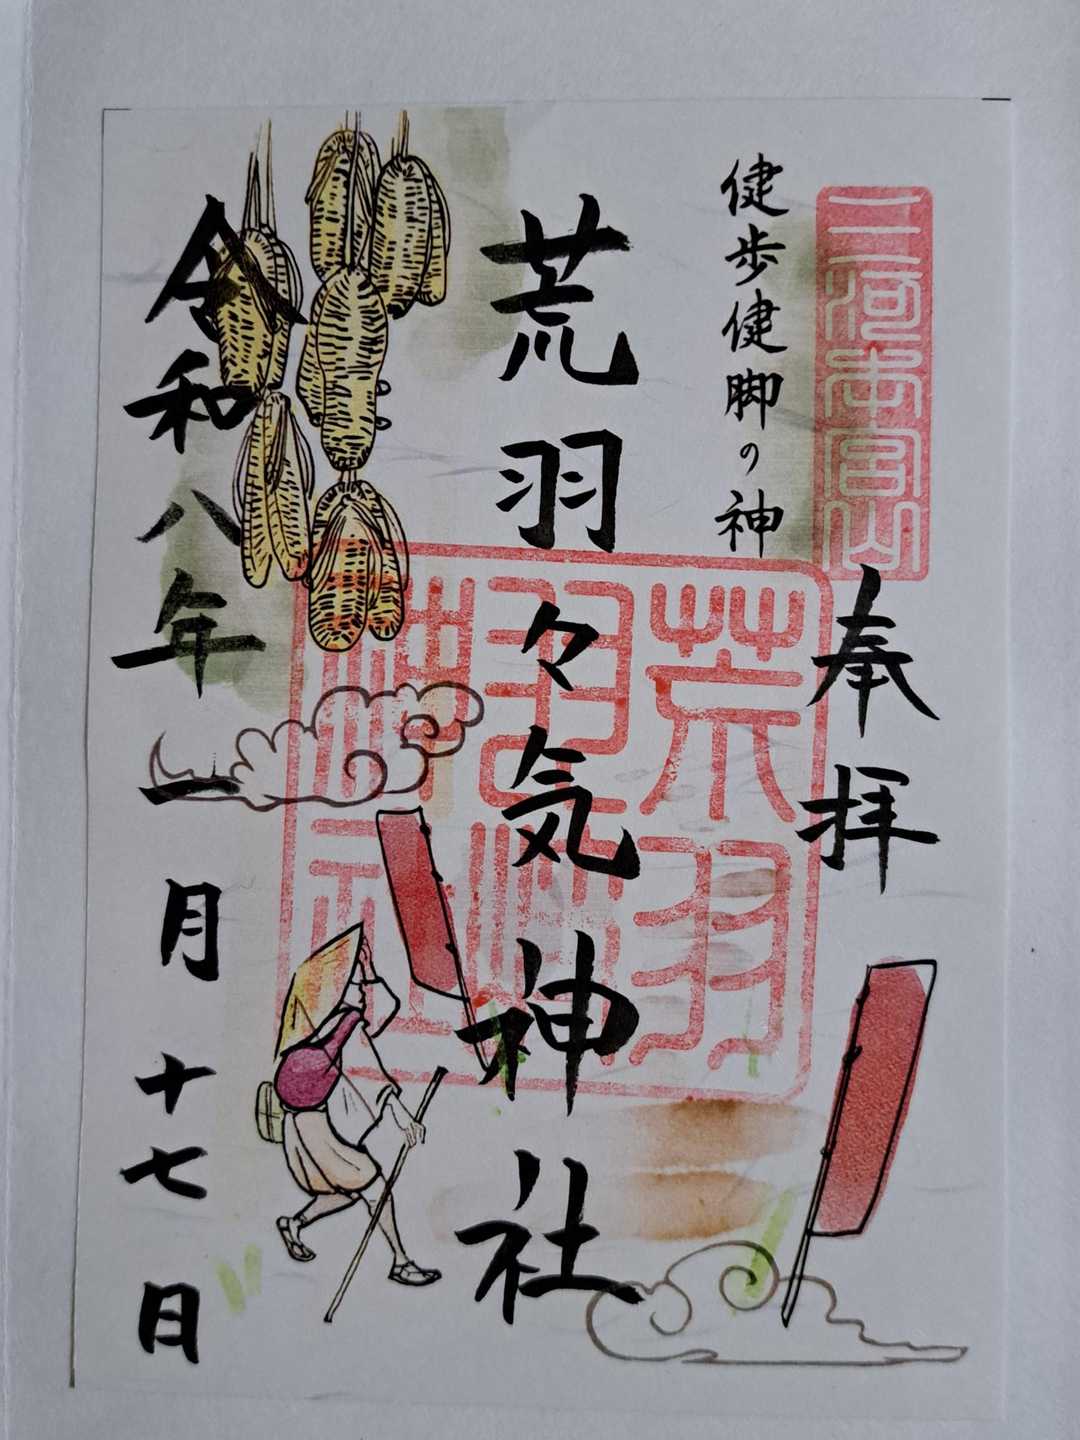 三河本宮山
奉拝
健歩健脚の神
荒羽々気神社
荒羽
羽
神社
令和八年一月十七日